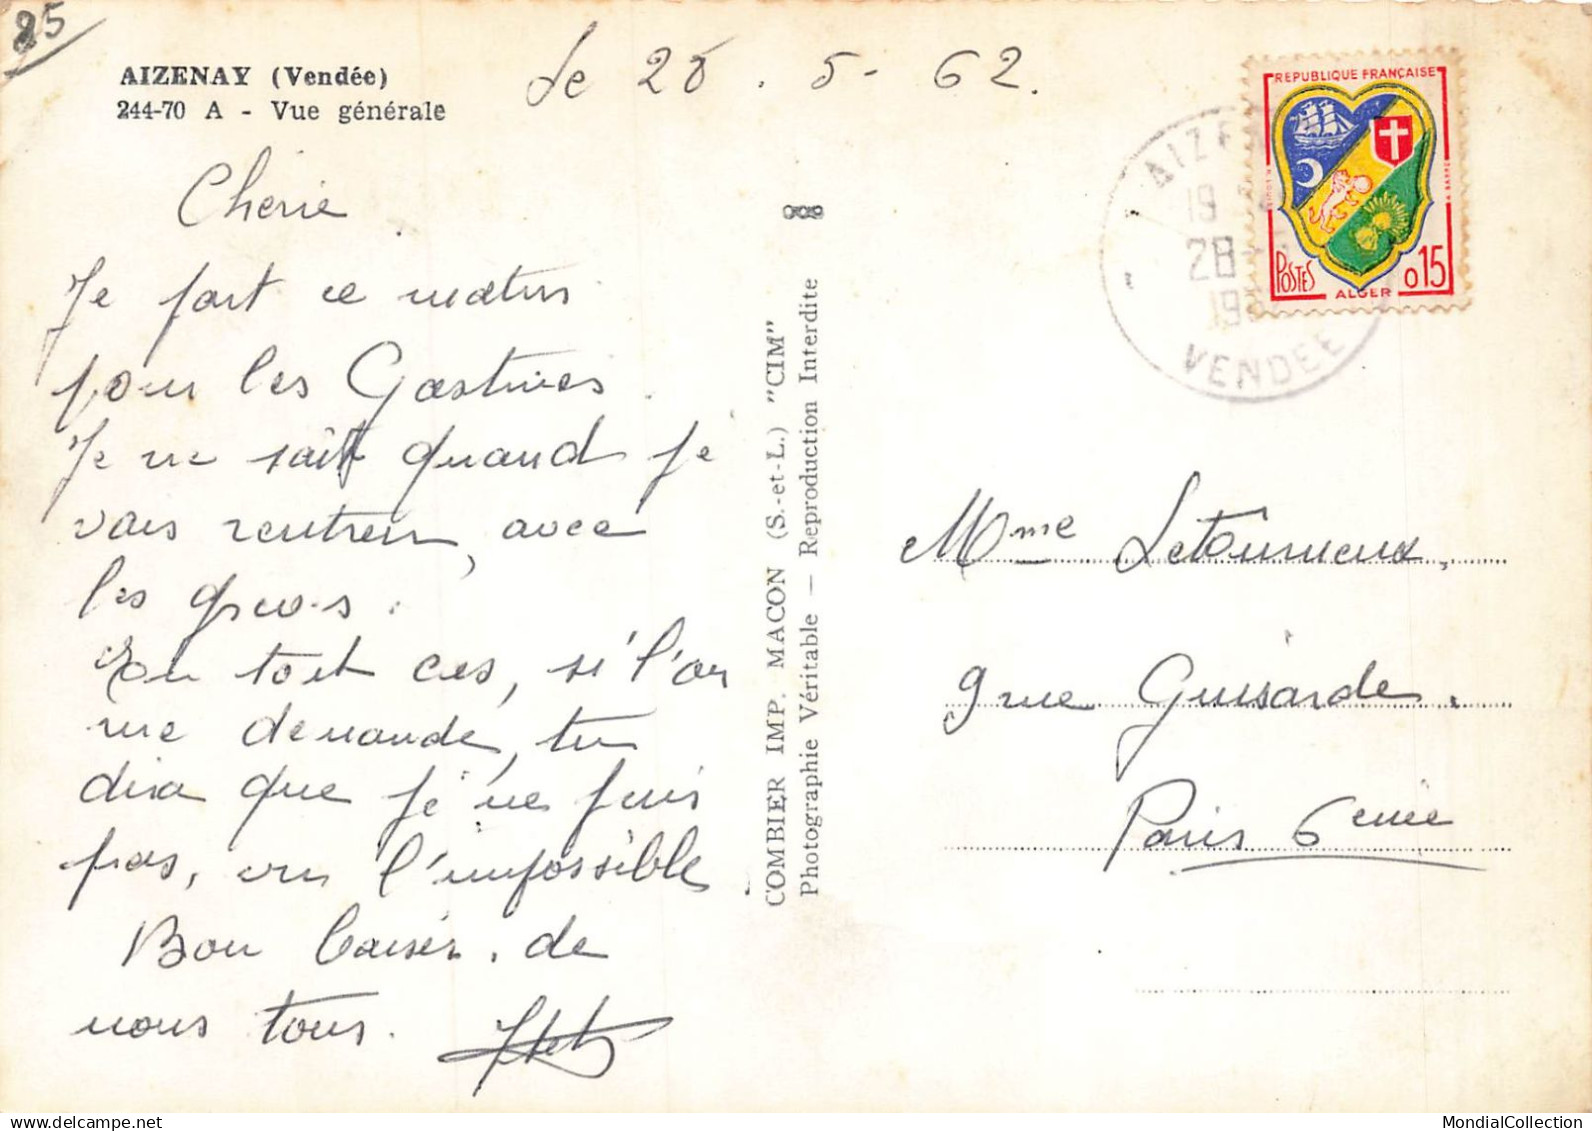 85
AIZENAY (Vendée)
244-70 A - Vue générale
le 28 . 5 - 62.
Cherie
Je part ce matin
pour les Gastines.
Je ne sait quand je
vais rentrer, avec
les greves.
En tout cas, si l'on
me demande, tu
dira que je ne puis
pas, vu l'impossible
Bon baiser. de
nous tous.
COMBIER IMP. MACON (S.-et-L.) "CIM"
Photographie Véritable — Reproduction Interdite
REPUBLIQUE FRANÇAISE
POSTES
ALGER
0,15
AIZE
19
28
19
VENDEE
Mme Letourneux,
9 rue Guisarde.
Paris 6eme
MondialCollection